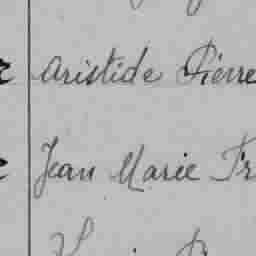 Aristide Pierre
Jean Marie Fr